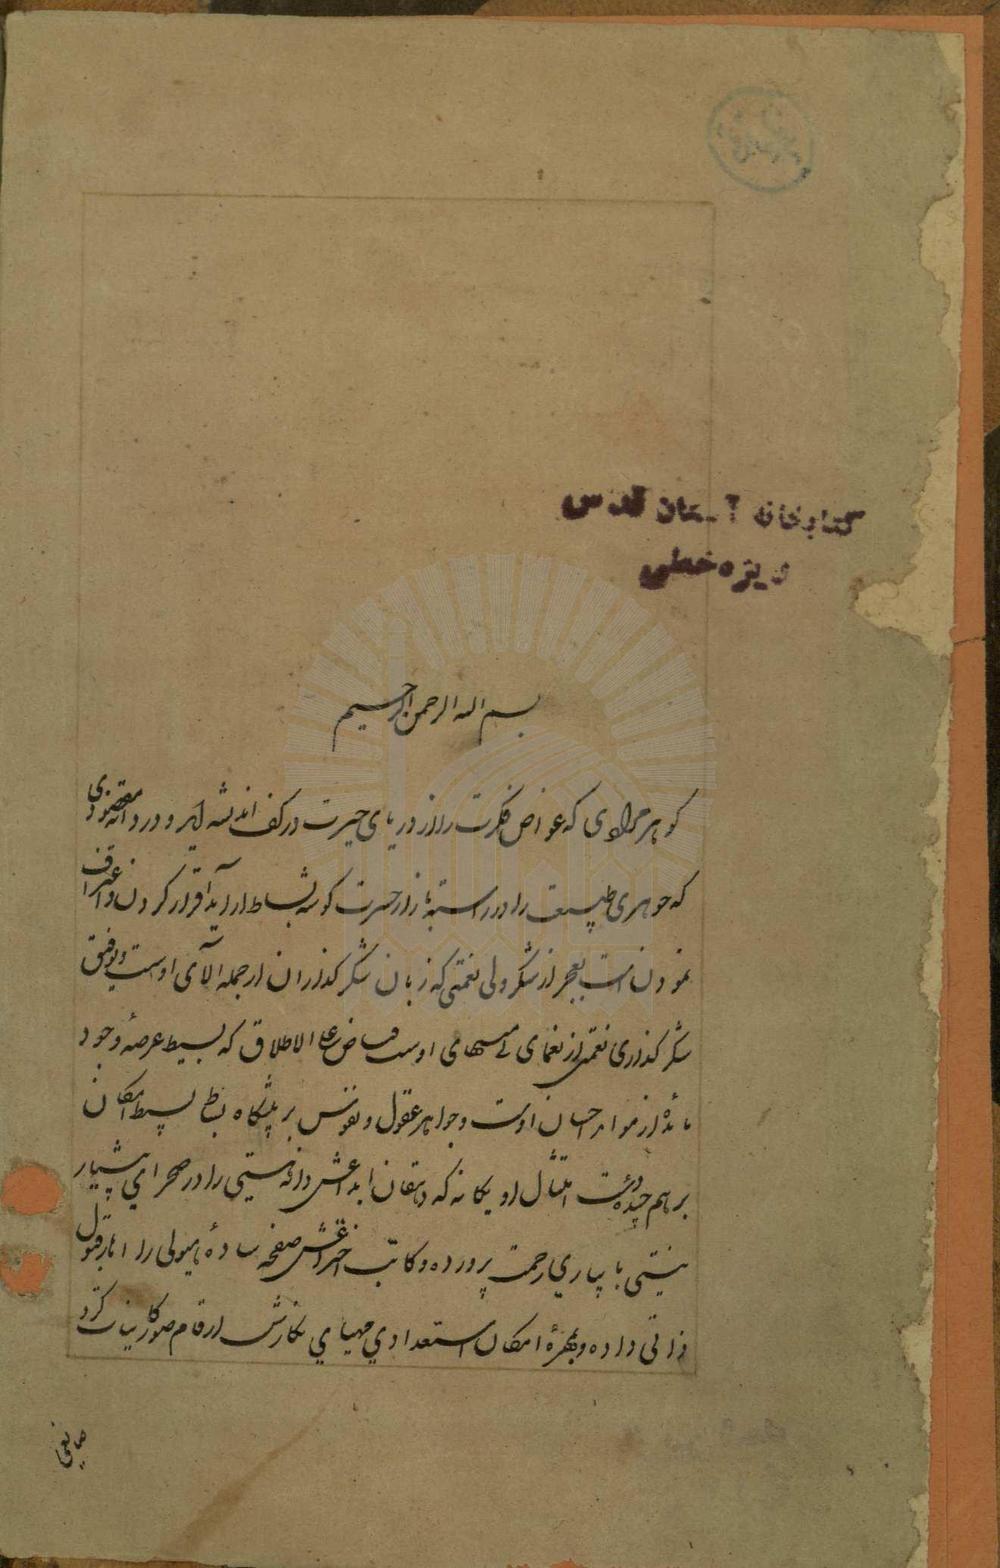 کتابخانه آستان قدس
ویژه خطی
بسم الله الرحمن الرحیم
کوهر مرادی که غواص فکرت را از دریای حیرت در کف اندیشه آید و در دانه مقصودی
که جوهری طبیعت را در راسته بازار حسرت کوشه بساط آراید اقرار کردن و اعتراف
نمودنست بعجز از شکر ولی نعمتی که زبان شکر کذاران از جمله آلای اوست و توفیق
شکر کذاری نعمتی از نعمای بی منتهای اوست فیاض علی الاطلاق که بسیط عرصهٔ وجود
مائدهٔ از موائد احسان اوست و جواهر عقول و نفوس بر پیشکاه بساط بسیط امکان
برهم چیده دست امتثال او یکانه که دهقان ابداعش دانه هستی را در صحرای بسیار
نیستی با بیاری رحمت پرورده و کاتب اختراعش صفحه ساده هیولی را
ذاتی داده و بهرهٔ امکان استعدادی مهیای نکارش ارقام صور کاینات کرد